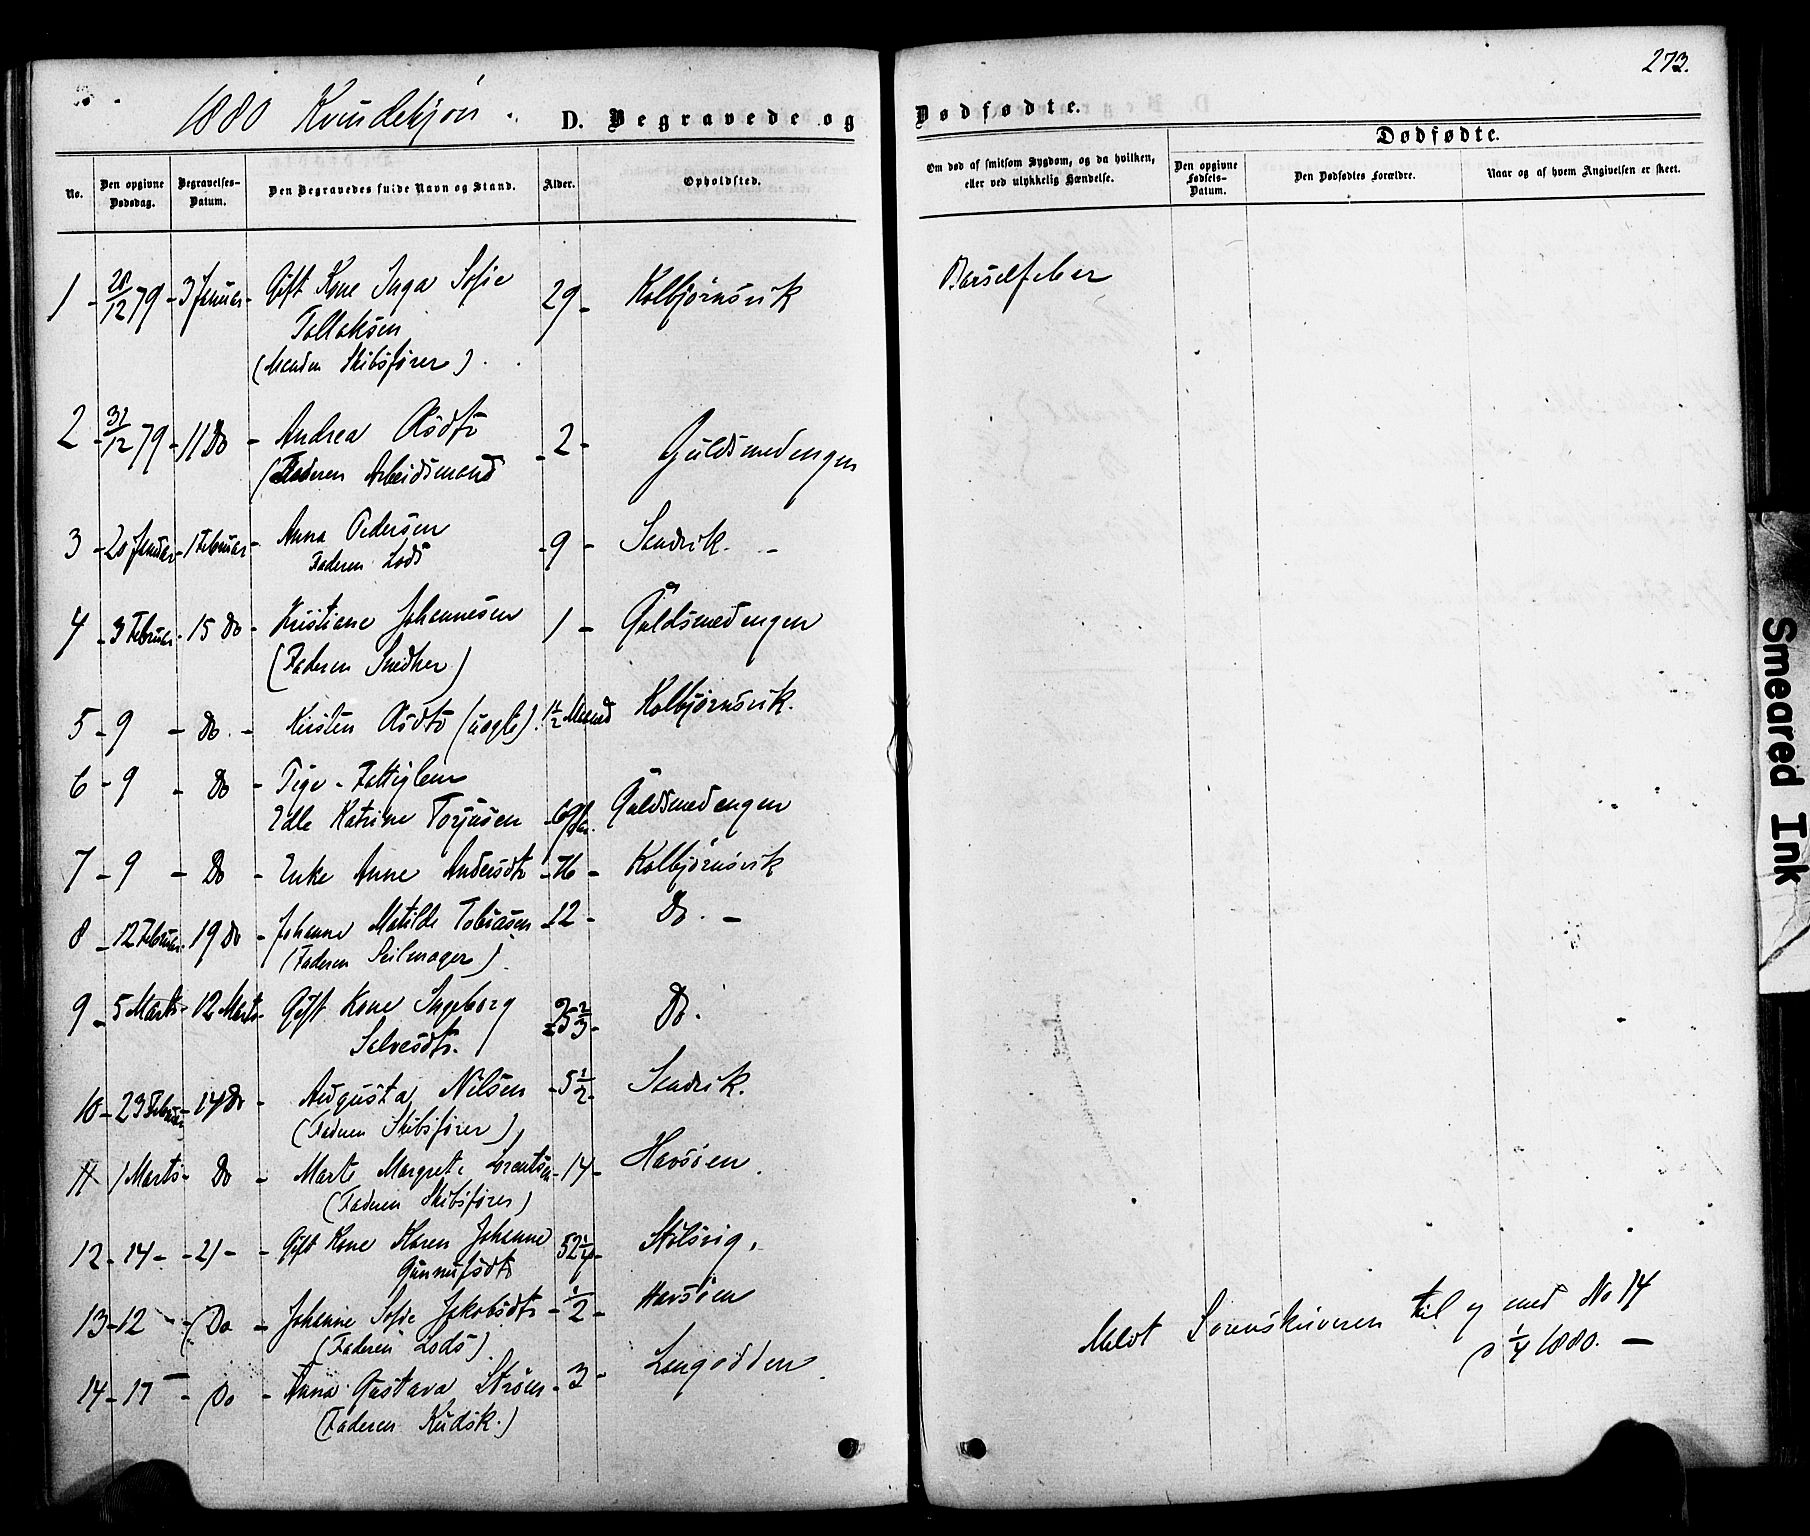 273.
1880 Kvindekjøn. D. Begravede og Dødfødte.
Dødfødte.
No. Den opgivne Dødsdag. Begravelses-Datum. Den Begravedes fulde Navn og Stand. Alder. Opholdsted. Om død af smitsom Sygdom, og da hvilken, eller ved ulykkelig Hændelse. Den opgivne Fødsels-Datum. Den Dødfødtes Forældre. Naar og af hvem Angivelsen er skeet.
1 - 28/12 79 - 3 Januar - Gift Kone Inga Sofie 29 - Kolbjørnsvik Barselfeber
Tallaksen
(Manden Skibsfører).
2 - 31/12 79 - 11 Do - Andrea Asdtr - 2 - Guldsmedengen
(Faderen Arbeidsmand
3 - 20 Januar - 1 Februar - Anna Pedersen - 9 - Sandvik. -
Faderen Lods
4 - 3 Februar - 15 Do - Kristiane Johannesen 1 - Guldsmedengen
(Faderen Snedker)
5 - 9 - Do. - Kirsten Asdtr (uægte). 1 1/2 Maaned Kolbjørnsvik.
6 - 9 - Do - Pige - Fattiglem
Edle Katrine Torjusen - 69 Guldsmedengen
7 - 9 - Do - Enke Anne Andersdtr - 76 - Kolbjørnsvik
8 - 12 Februar - 19 Do - Johanne Matilde Tobiasen - 12 - Do. -
(Faderen Seilmager).
9 - 5 Marts - 12 Marts - Gift Kone Ingeborg 25 2/3 - Do.
Salvesdtr.
10 - 23 Februar - 14 Do - Augusta Nilsen - 5 1/2 - Sandvik.
(Faderen Skibsfører)
11 - 1 Marts - Do - Marte Margrete Lorentsen - 14 - Havsøen.
(Faderen Skibsfører)
12 - 14 - - 21 - - Gift Kone Karen Johanne 52 1/4 - Stølsvig.
Gunnufsdtr
13 - 12 - - Do - Johanne Sofie Jakobsdtr - 1/2 - Havsøen
(Faderen Lods)
14 - 17 - - Do - Anna Gustava Strøm - 3 - Langodden.
(Faderen Kudsk.)
Meldt Sorenskriveren til og med No 14
d 1/4 1880. -
Smeared Ink